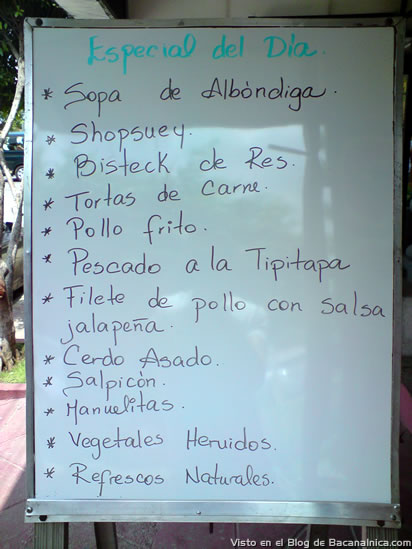 Especial del Día.
* Sopa de Albóndiga.
* Shopsuey.
* Bisteck de Res.
* Tortas de Carne.
* Pollo frito.
* Pescado a la Tipitapa
* Filete de pollo con salsa
jalapeña.
* Cerdo Asado.
* Salpicón.
* Manuelitas.
* Vegetales Hervidos.
* Refrescos Naturales.
Visto en el Blog de Bacanalnica.com